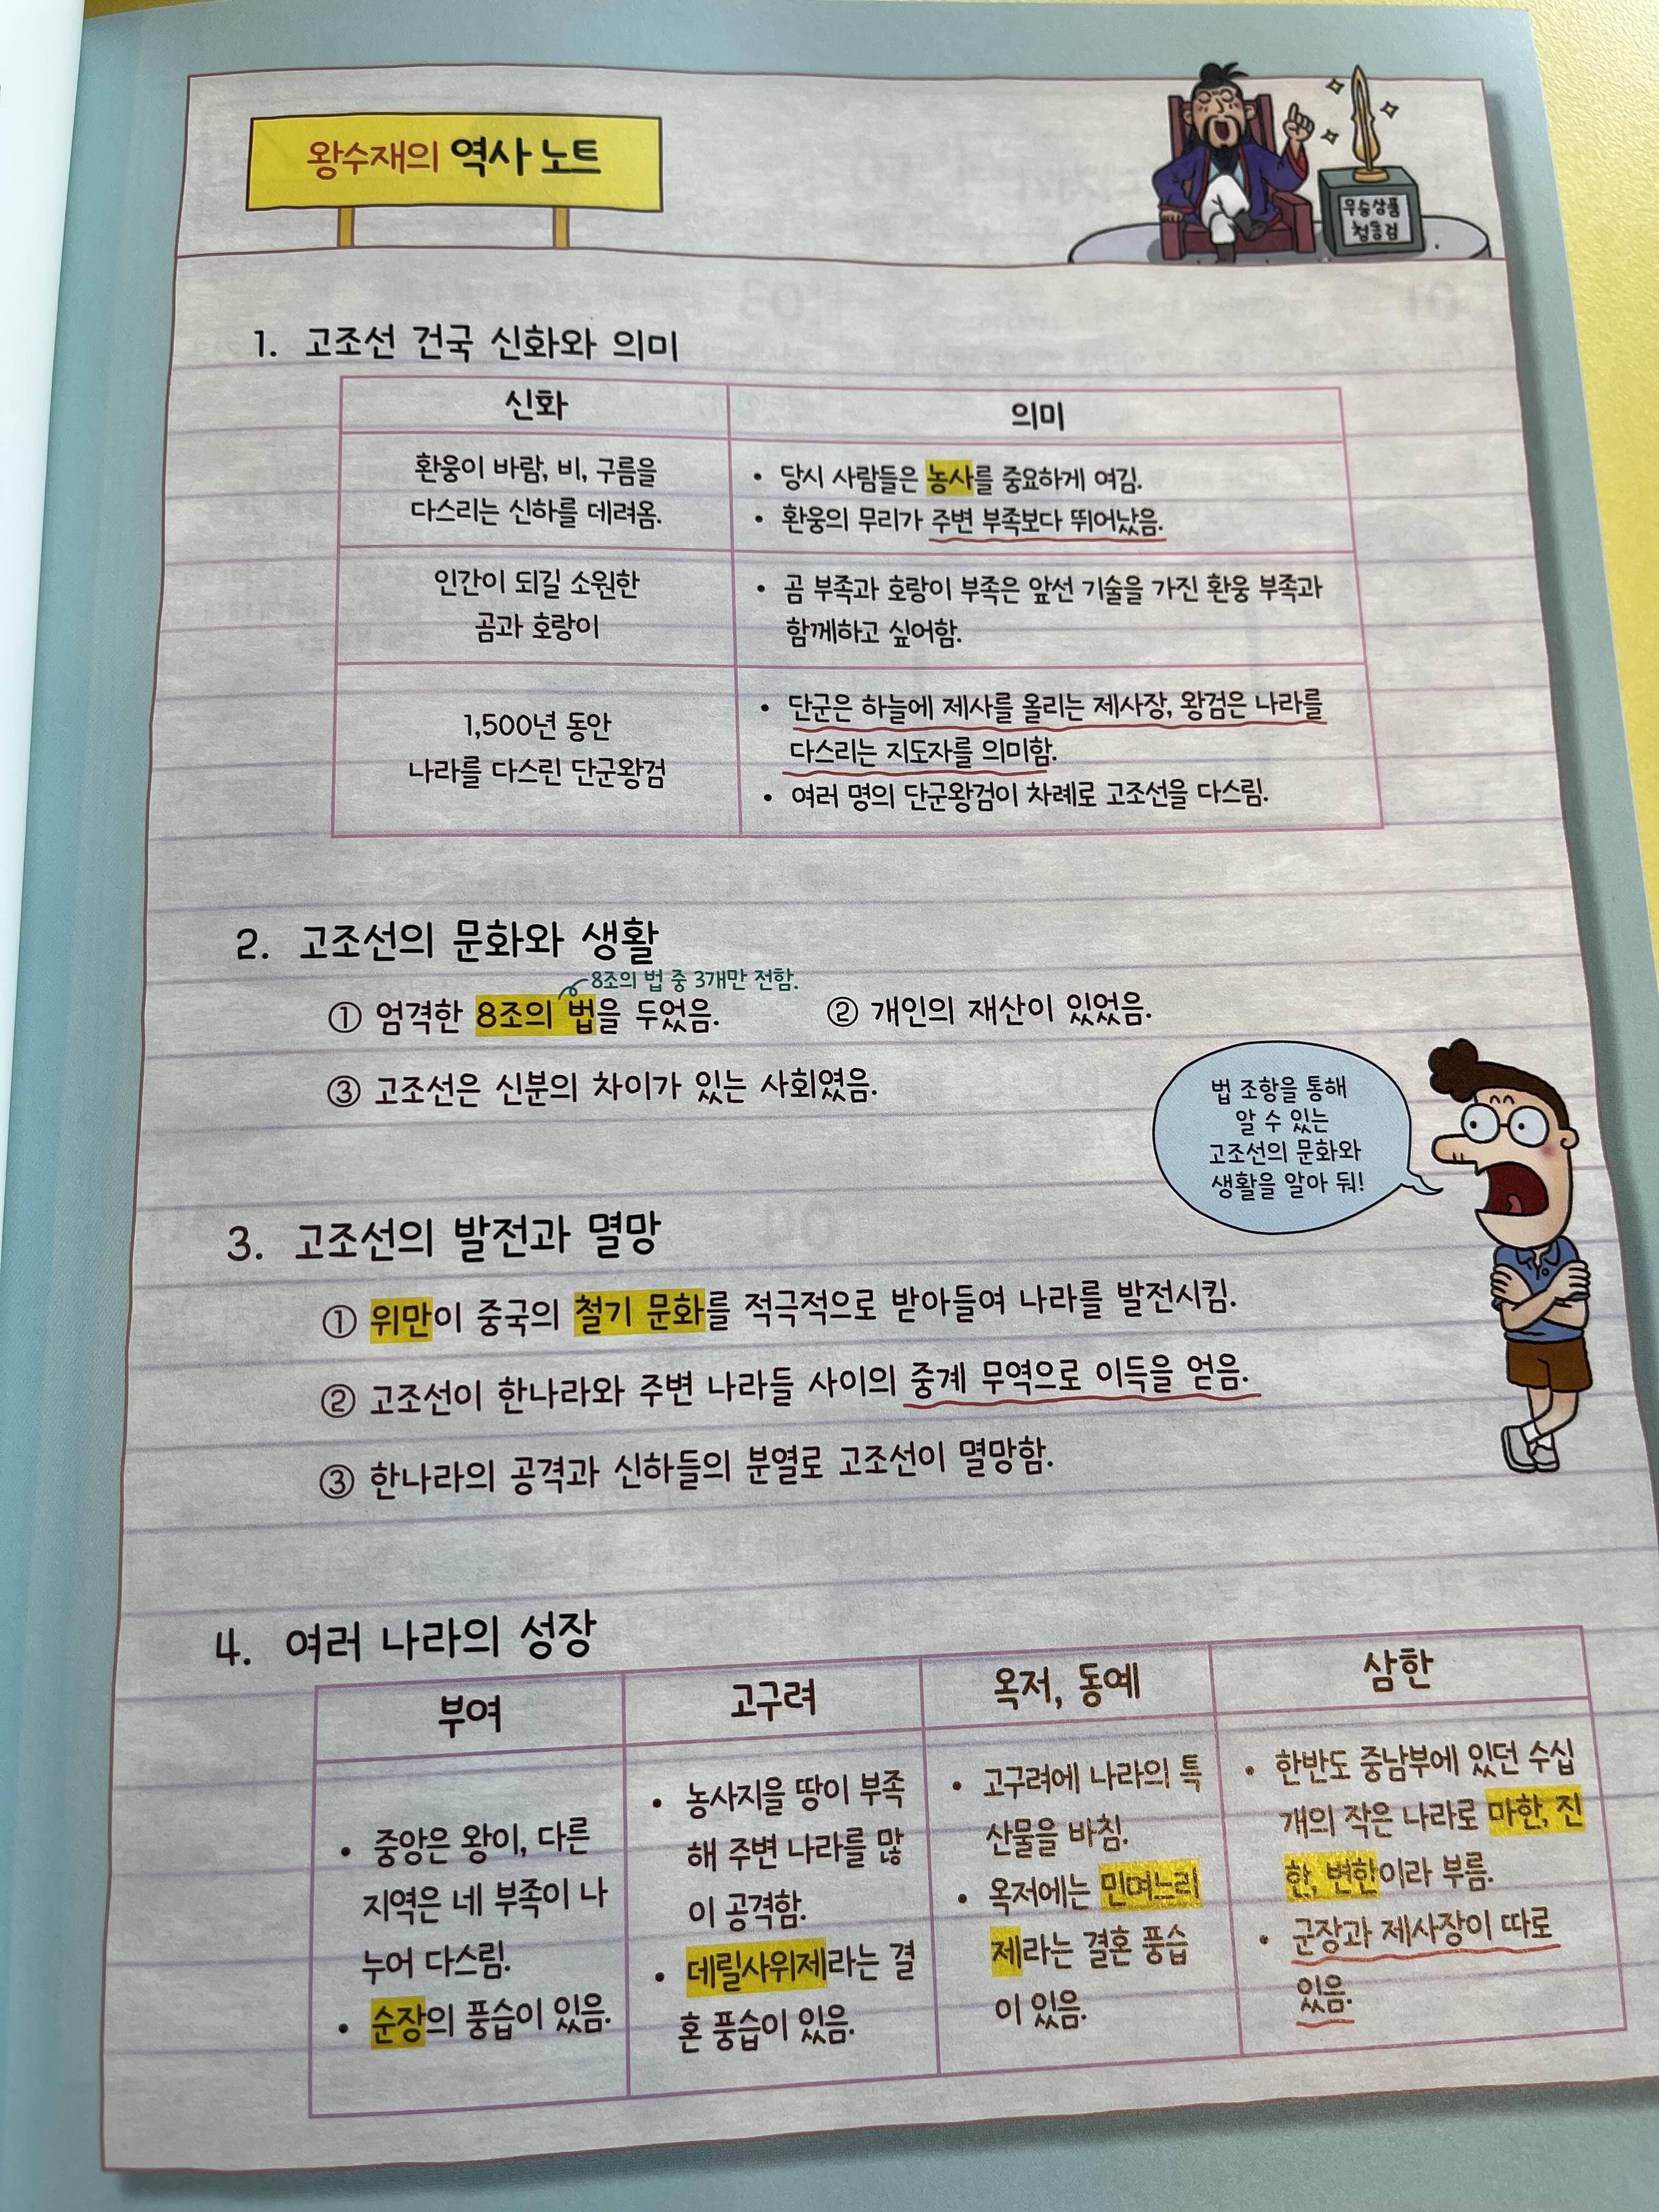 왕수재의 역사 노트
우승상품
청동검
1. 고조선 건국 신화와 의미
신화
의미
환웅이 바람, 비, 구름을
다스리는 신하를 데려옴.
• 당시 사람들은 농사를 중요하게 여김.
• 환웅의 무리가 주변 부족보다 뛰어났음.
인간이 되길 소원한
곰과 호랑이
• 곰 부족과 호랑이 부족은 앞선 기술을 가진 환웅 부족과
함께하고 싶어함.
1,500년 동안
나라를 다스린 단군왕검
• 단군은 하늘에 제사를 올리는 제사장, 왕검은 나라를
다스리는 지도자를 의미함.
• 여러 명의 단군왕검이 차례로 고조선을 다스림.
2. 고조선의 문화와 생활
8조의 법 중 3개만 전함.
① 엄격한 8조의 법을 두었음.
② 개인의 재산이 있었음.
③ 고조선은 신분의 차이가 있는 사회였음.
법 조항을 통해
알 수 있는
고조선의 문화와
생활을 알아 둬!
3. 고조선의 발전과 멸망
① 위만이 중국의 철기 문화를 적극적으로 받아들여 나라를 발전시킴.
② 고조선이 한나라와 주변 나라들 사이의 중계 무역으로 이득을 얻음.
③ 한나라의 공격과 신하들의 분열로 고조선이 멸망함.
4. 여러 나라의 성장
부여
• 중앙은 왕이, 다른
지역은 네 부족이 나
누어 다스림.
• 순장의 풍습이 있음.
고구려
• 농사지을 땅이 부족
해 주변 나라를 많
이 공격함.
• 데릴사위제라는 결
혼 풍습이 있음.
옥저, 동예
• 고구려에 나라의 특
산물을 바침.
• 옥저에는 민며느리
제라는 결혼 풍습
이 있음.
삼한
• 한반도 중남부에 있던 수십
개의 작은 나라로 마한, 진
한, 변한이라 부름.
• 군장과 제사장이 따로
있음.